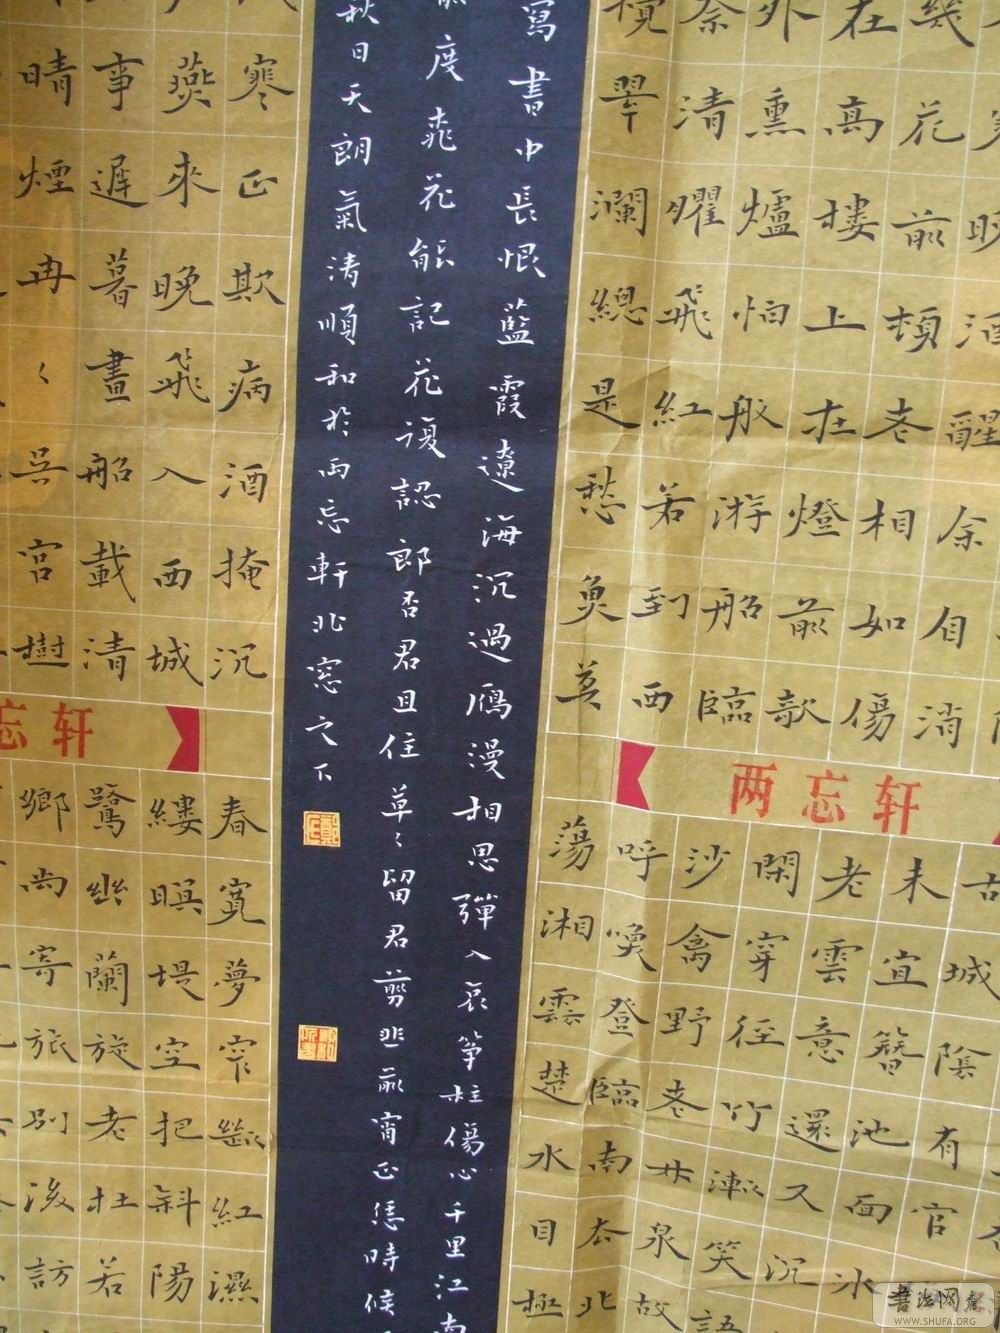 晚酒醒余自消
幾花前頓老相如傷
在高樓上在燈前欹
外熏爐怕般游船臨
奈清臞飛紅若到西
攪翠瀾總是愁魚莫
两忘轩
古城陰有官
未宜簪池面冰
老雲意還又沉
閑穿徑竹漸笑語
沙禽野老林泉故
呼喚登臨南去北
蕩湘雲楚水目極
寫書中長恨藍霞遼海沉過鴈漫相思彈入哀箏柱傷心千里江南
度桃花能記花復認郎否君且住草々留君翦韭前宵正恁時候
秋日天朗氣清順和於兩忘軒北窓之下
寒正欺病酒掩沉
燕來晚飛入西城
事遲暮畫船載清
晴煙冉々吳宮樹
忘轩
春寬夢窄斷紅濕
縷暝堤空把斜陽
鷺幽蘭旋老杜若
鄉尚寄旅別後訪
書法网
WWW.SHUFA.ORG